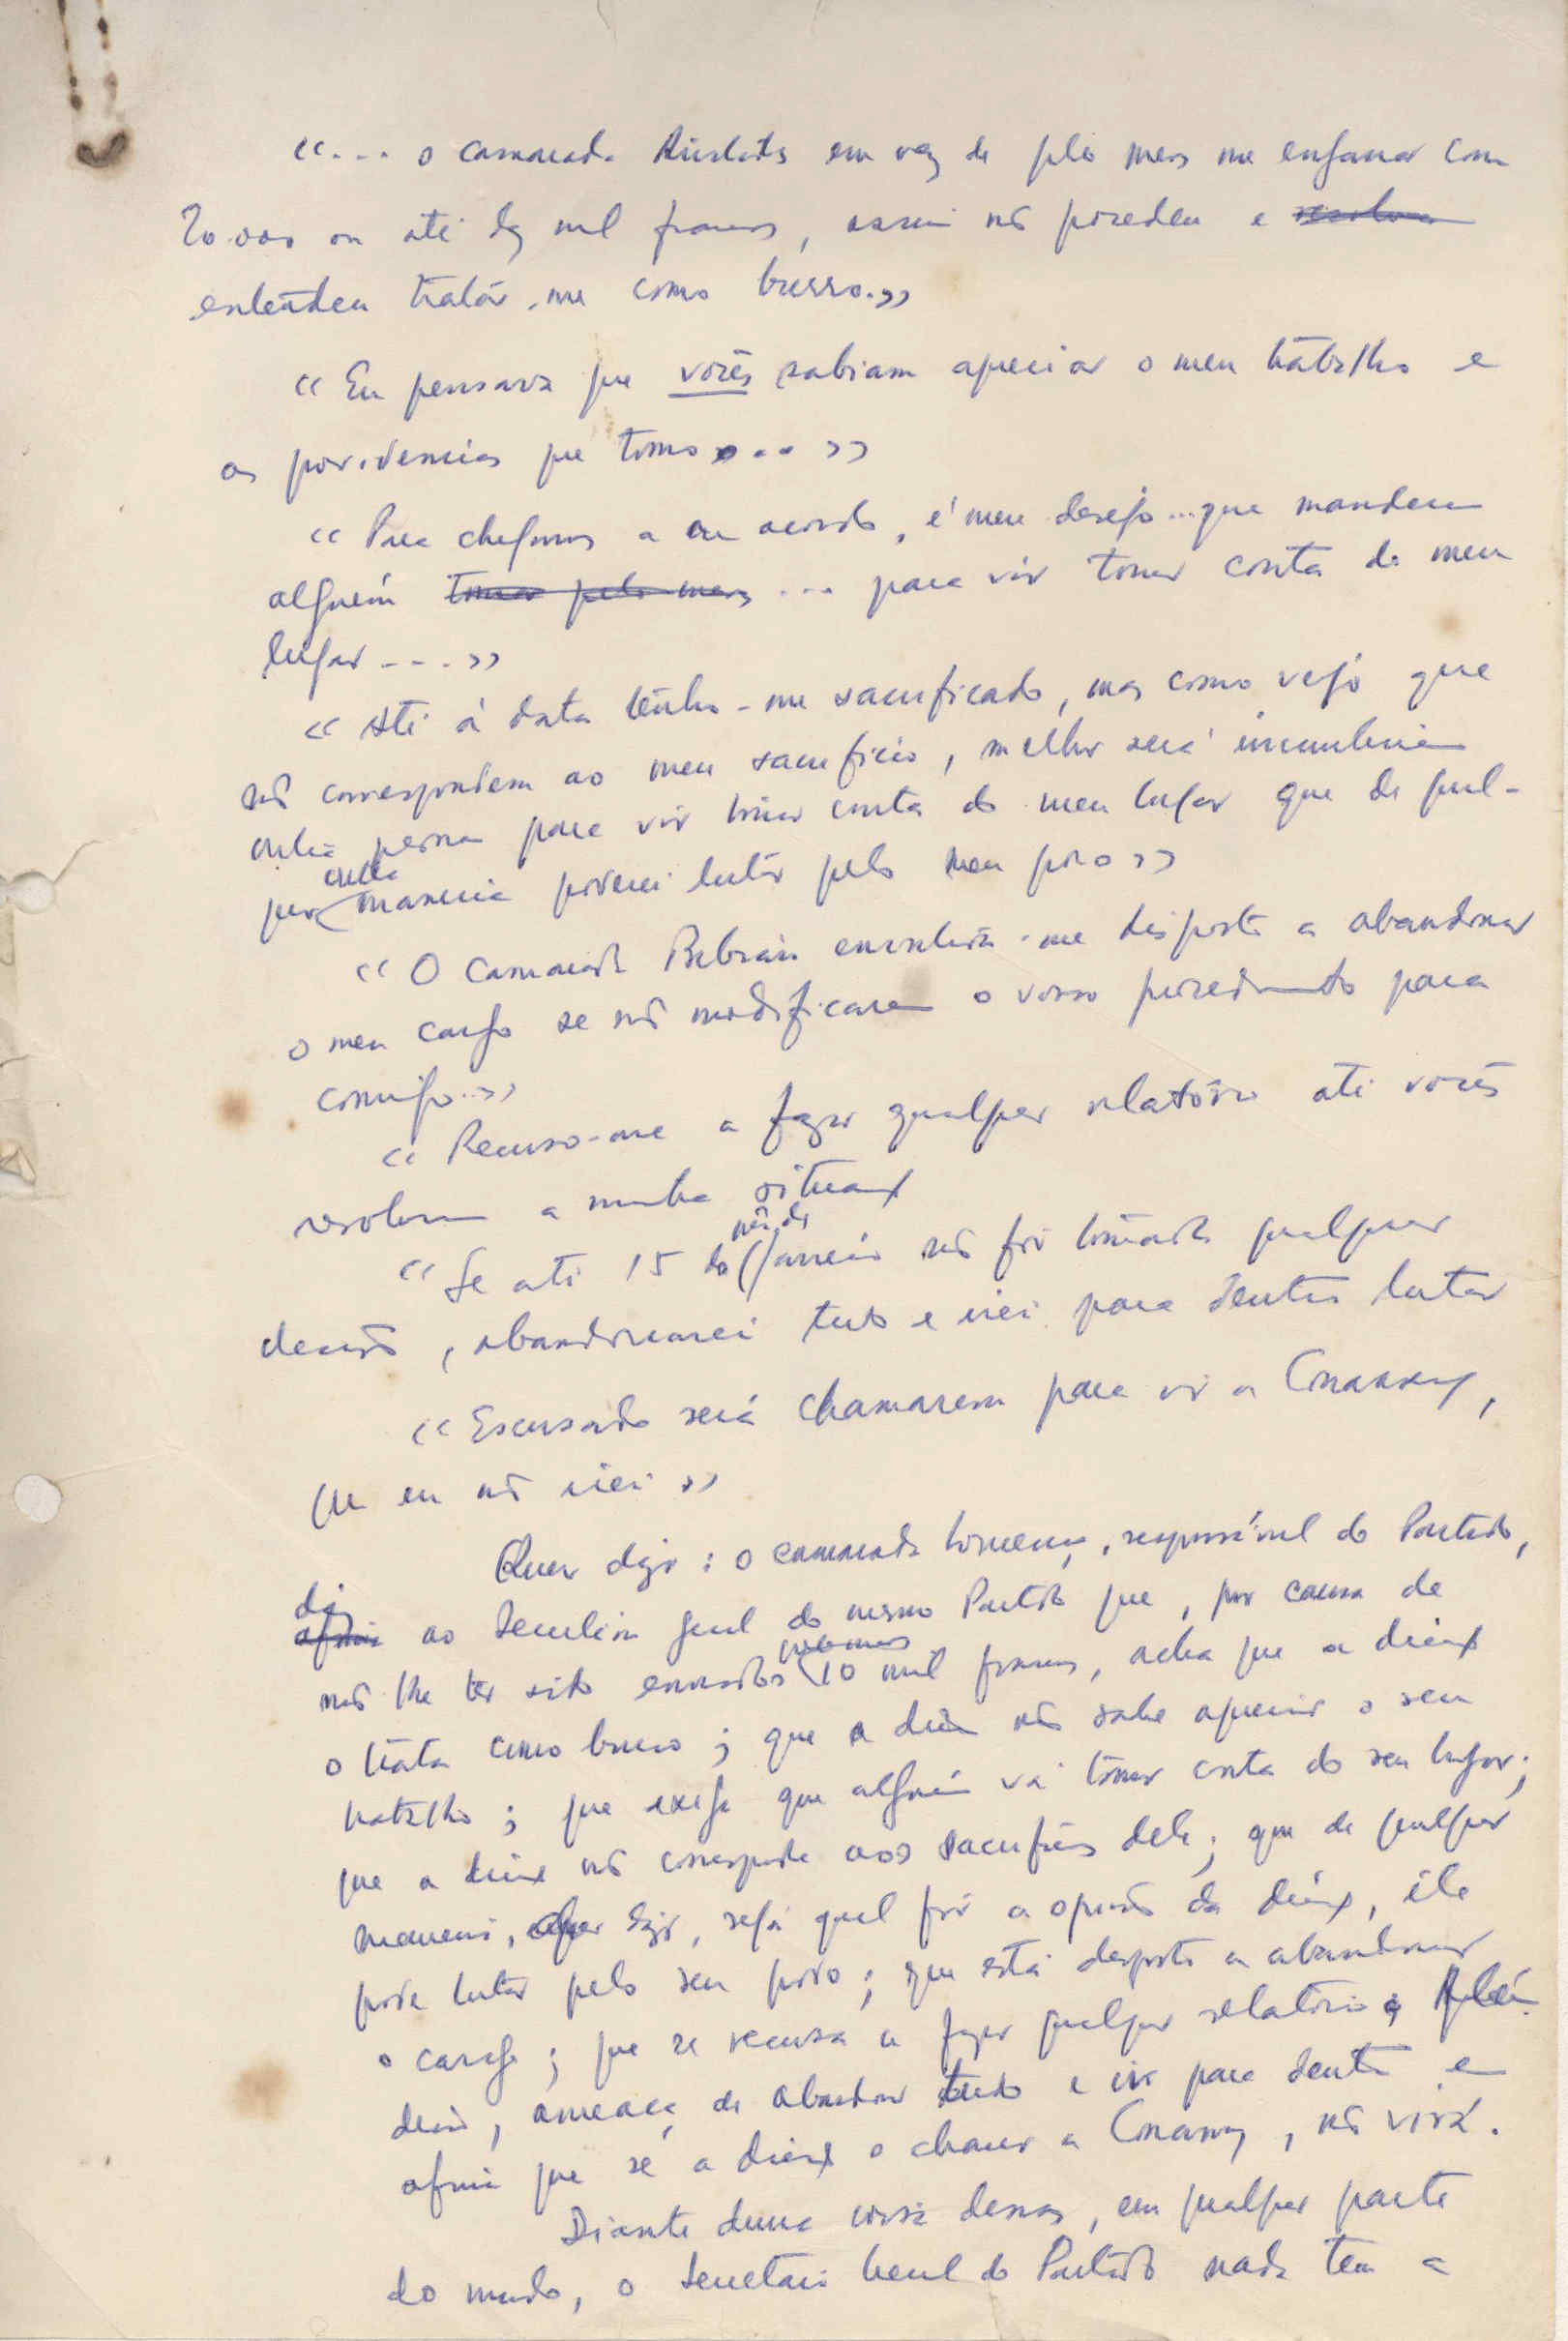 «... o camarada em vez de pelo menos me enganar com
20.000 ou até dez mil francos, assim não procedeu e
entendeu tratar-me como burro.»
« Eu pensava que vocês sabiam apreciar o meu trabalho e
as providencias que tomo... »
« Para chegarmos a um acordo, é meu desejo... que mandem
alguém tomar pelo menos ... para vir tomar conta do meu
lugar ....»
« Até à data tenho-me sacrificado, mas como vejo que
não correspondem ao meu sacrificio, melhor será incumbirem
outra pessoa para vir tomar conta do meu lugar que de qual-
quer outra maneira poderei lutar pelo meu povo »
« O camarada encontra-me disposto a abandonar
o meu cargo se não modificarem o vosso procedimento para
comigo..»
« Recuso-me a fazer qualquer relatório até vocês
resolverem a minha situação
« Se até 15 do mês de Janeiro não for tomada qualquer
decisão, abandonarei tudo e irei para dentro lutar
« Escusado será chamarem para vir a Conakry,
que eu não irei »
Quer dizer: o camarada Lourenço, responsável do Partido,
diz ao Secretário geral do mesmo Partido que, por causa de
não lhe ter sido enviados 10 mil francos, acha que a direcção
o trata como burro; que a direcção não sabe apreciar o seu
trabalho; que exige que alguém vá tomar conta do seu lugar;
que a direcção não corresponde aos sacrifícios dele; que de qualquer
maneira, quer dizer, seja qual for a opinião da direcção, êle
pode lutar pelo seu povo; que está disposto a abandonar
o cargo; que se recusa a fazer qualquer relatório; Além
disso, ameaça de abandonar tudo e ir para dentro e
afirma que se a direcção o chamar a Conakry, não virá.
Diante duma coisa dessas, em qualquer parte
do mundo, o Secretário Geral do Partido nada tem a